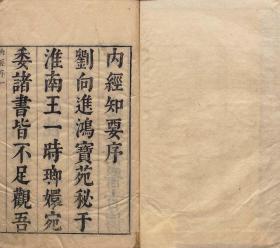 內經知要序
劉向進鴻寶苑秘于
淮南王一時瑯嬛宛
委諸書皆不足觀吾